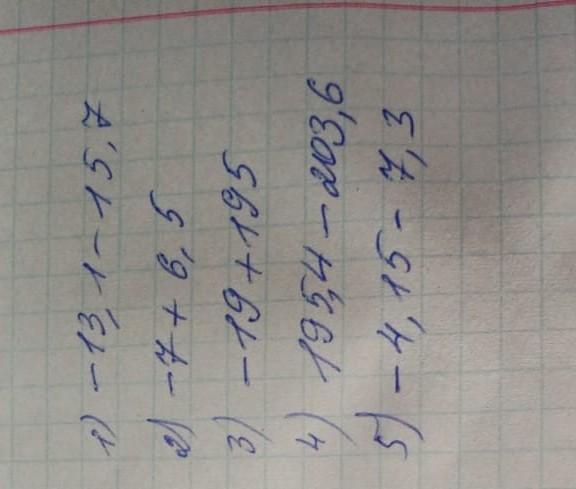 1) -13,1-15,7
2) -7+6,5
3) -19+195
4) 195,4-203,6
5) -4,15-7,3